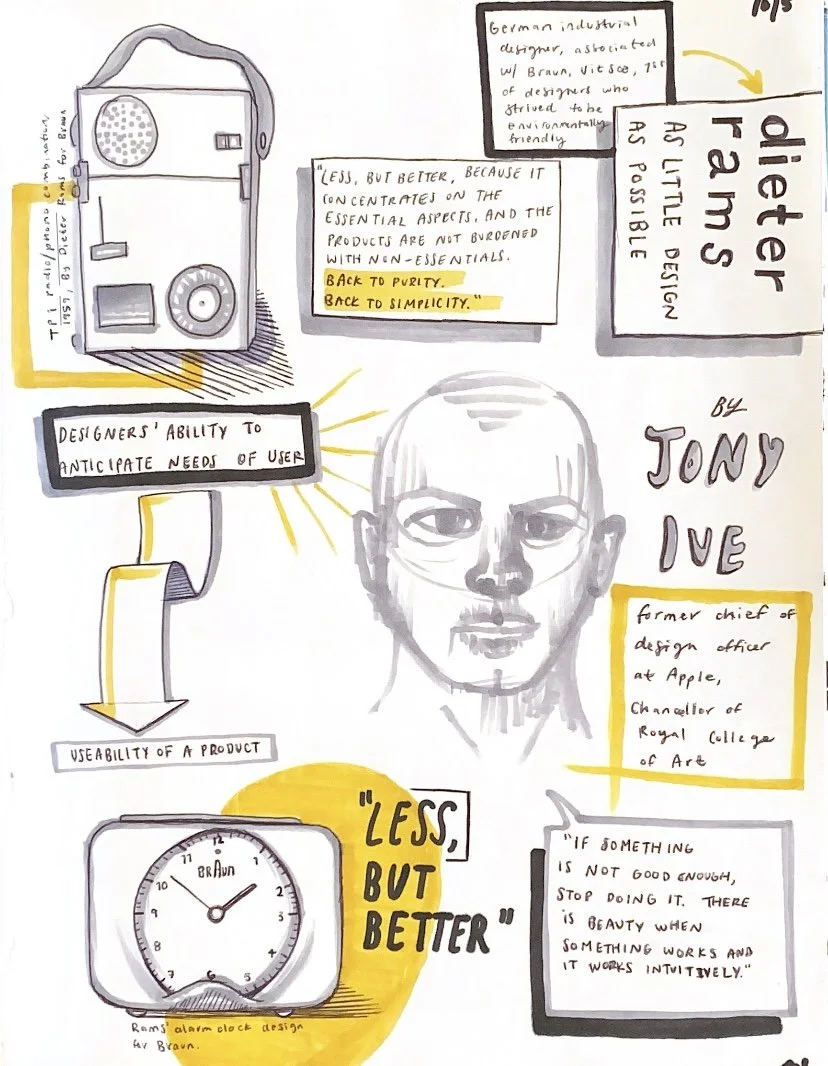 10/5
German industrial
designer, associated
w/ Braun, Vitsœ, 1st
of designers who
strived to be
environmentally
friendly
dieter
rams
AS LITTLE DESIGN
AS POSSIBLE
TP1 radio/phono combination,
1959, By Dieter Rams for Braun
"LESS, BUT BETTER, BECAUSE IT
CONCENTRATES ON THE
ESSENTIAL ASPECTS, AND THE
PRODUCTS ARE NOT BURDENED
WITH NON-ESSENTIALS.
BACK TO PURITY.
BACK TO SIMPLICITY."
DESIGNERS' ABILITY TO
ANTICIPATE NEEDS OF USER
BY
JONY
IVE
former chief of
design officer
at Apple,
Chancellor of
Royal College
of Art
USEABILITY OF A PRODUCT
"LESS,
BUT
BETTER"
12
11
1
BRAUN
10
2
9
3
8
4
7
6
5
Rams' alarm clock design
for Braun.
"IF SOMETHING
IS NOT GOOD ENOUGH,
STOP DOING IT. THERE
IS BEAUTY WHEN
SOMETHING WORKS AND
IT WORKS INTUITIVELY."